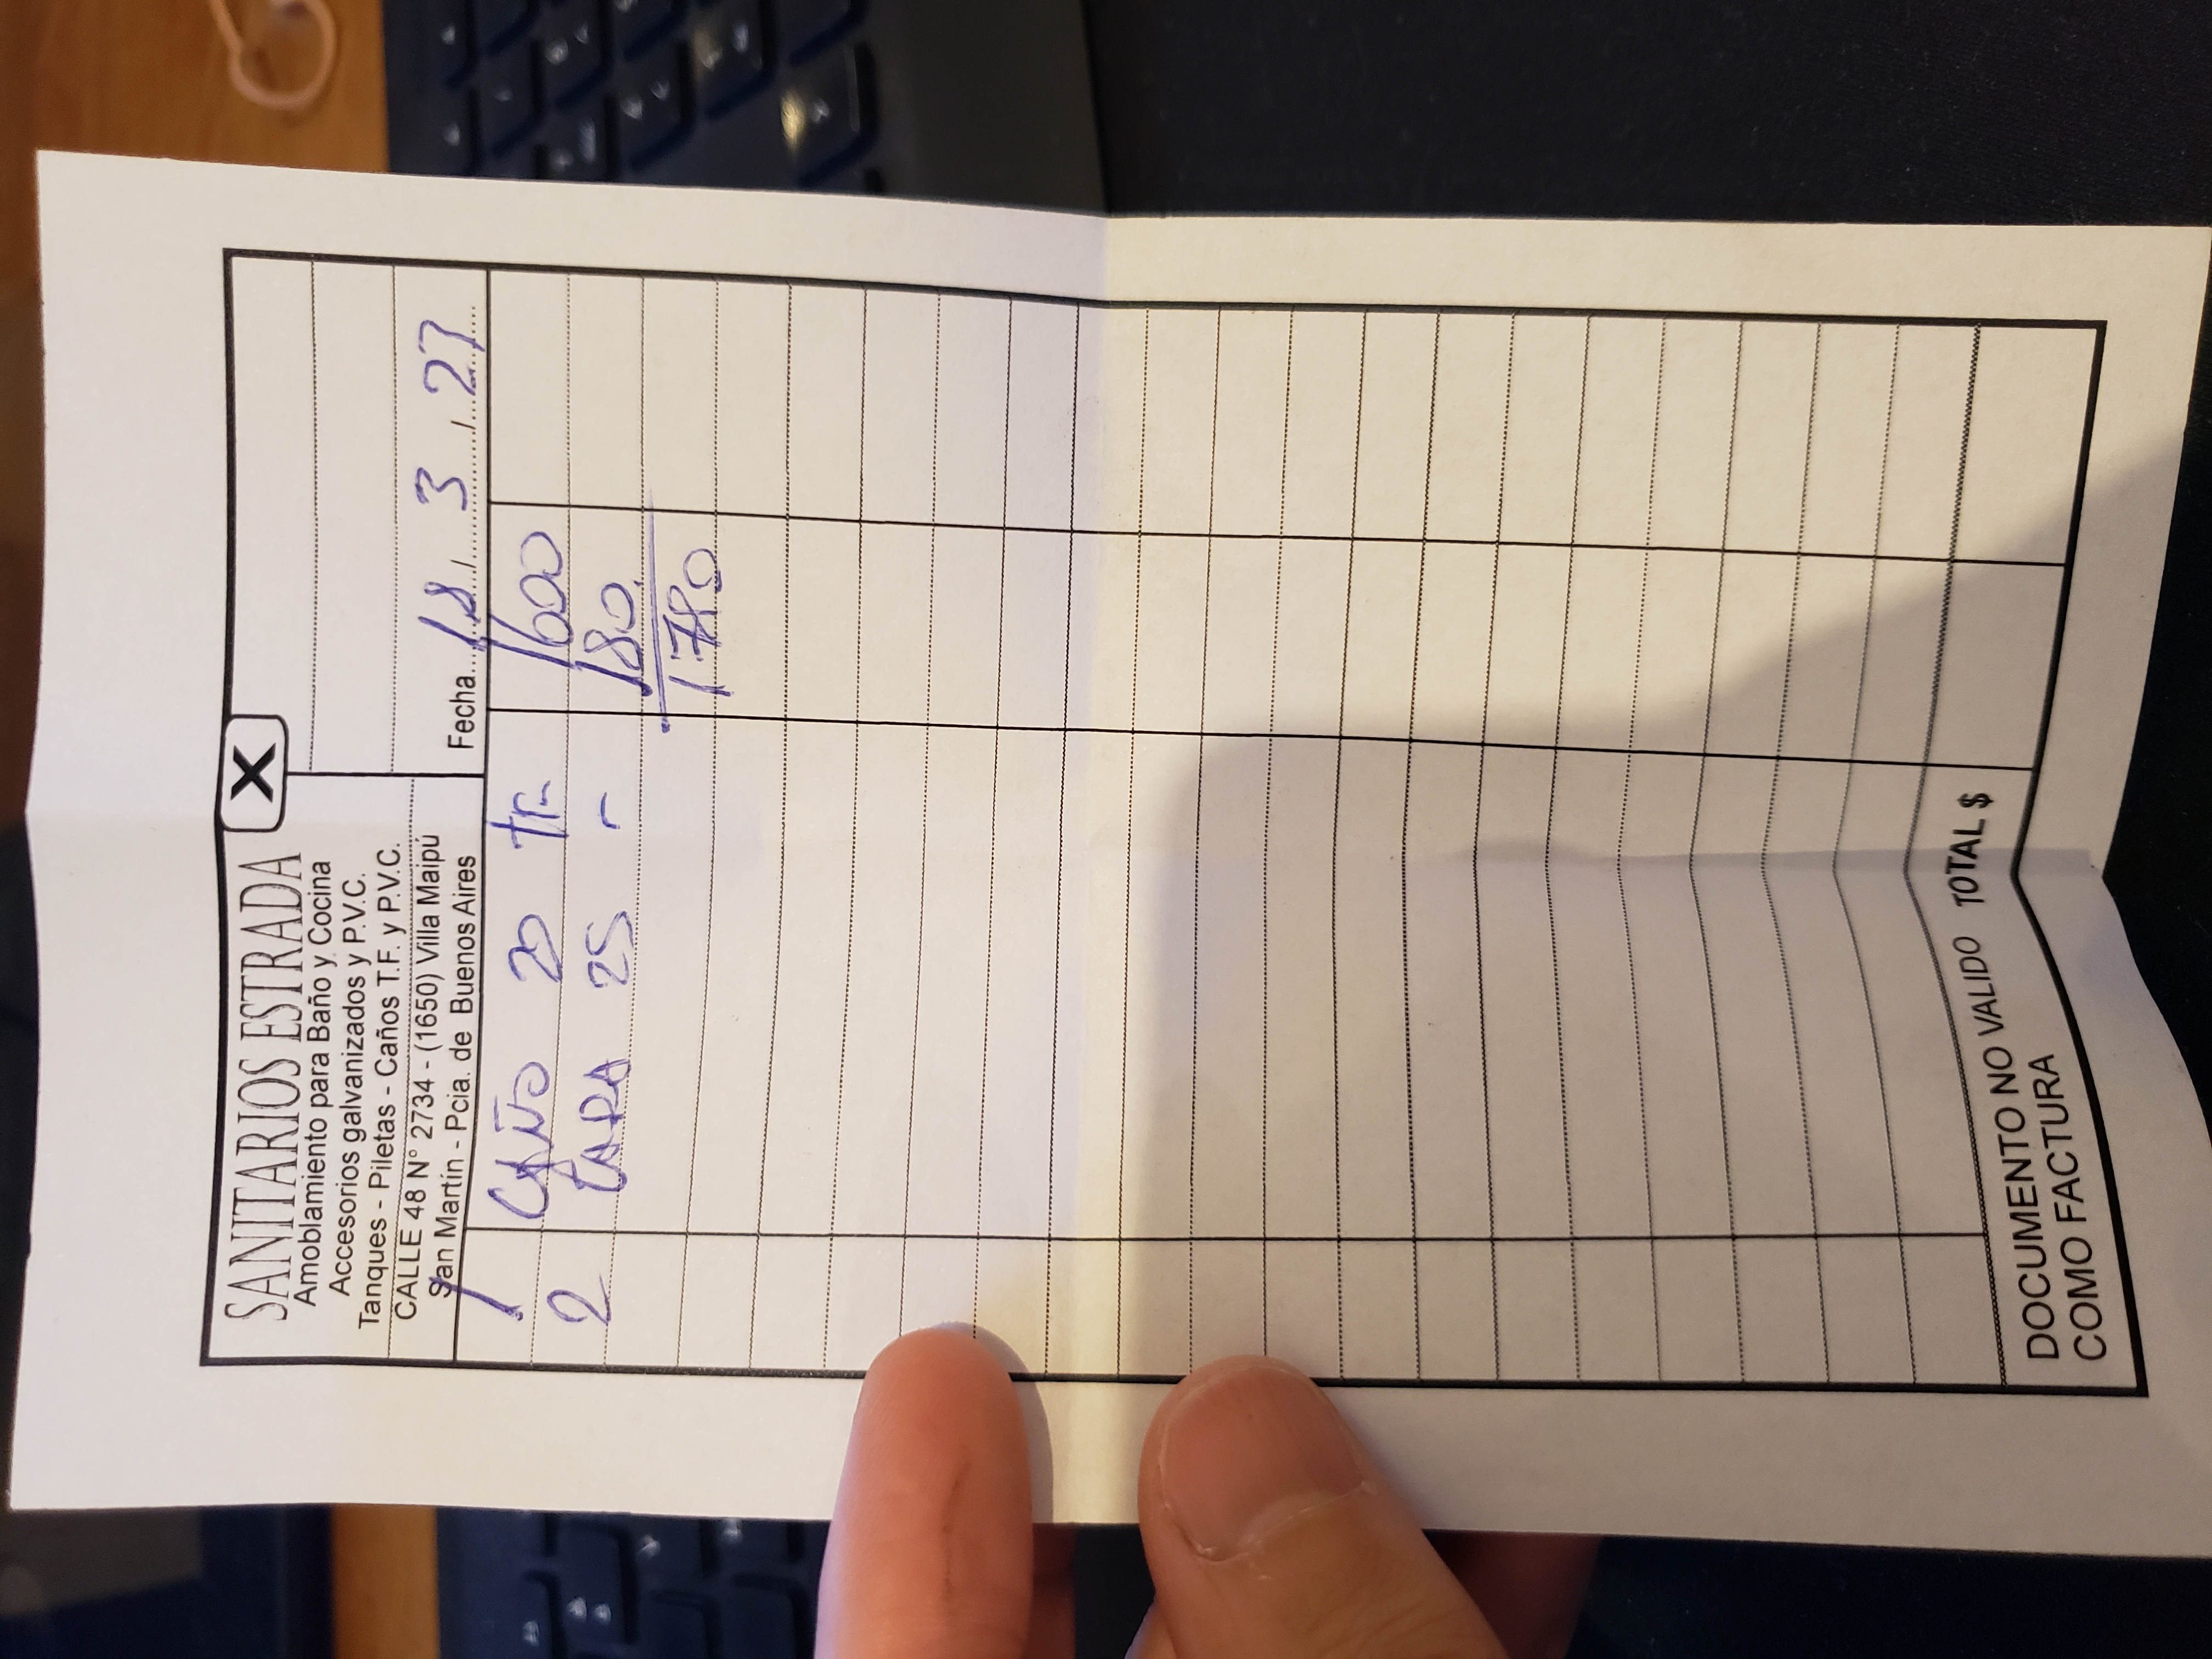 SANITARIOS ESTRADA
X
Amoblamiento para Baño y Cocina
Accesorios galvanizados y P.V.C.
Tanques - Piletas - Caños T.F. y P.V.C.
CALLE 48 N° 2734 - (1650) Villa Maipú
San Martín - Pcia. de Buenos Aires
Fecha 18 / 3 / 23
1 CAÑO 20 TF 1600
2 TAPA 25 - 180.
1780
DOCUMENTO NO VALIDO TOTAL $
COMO FACTURA